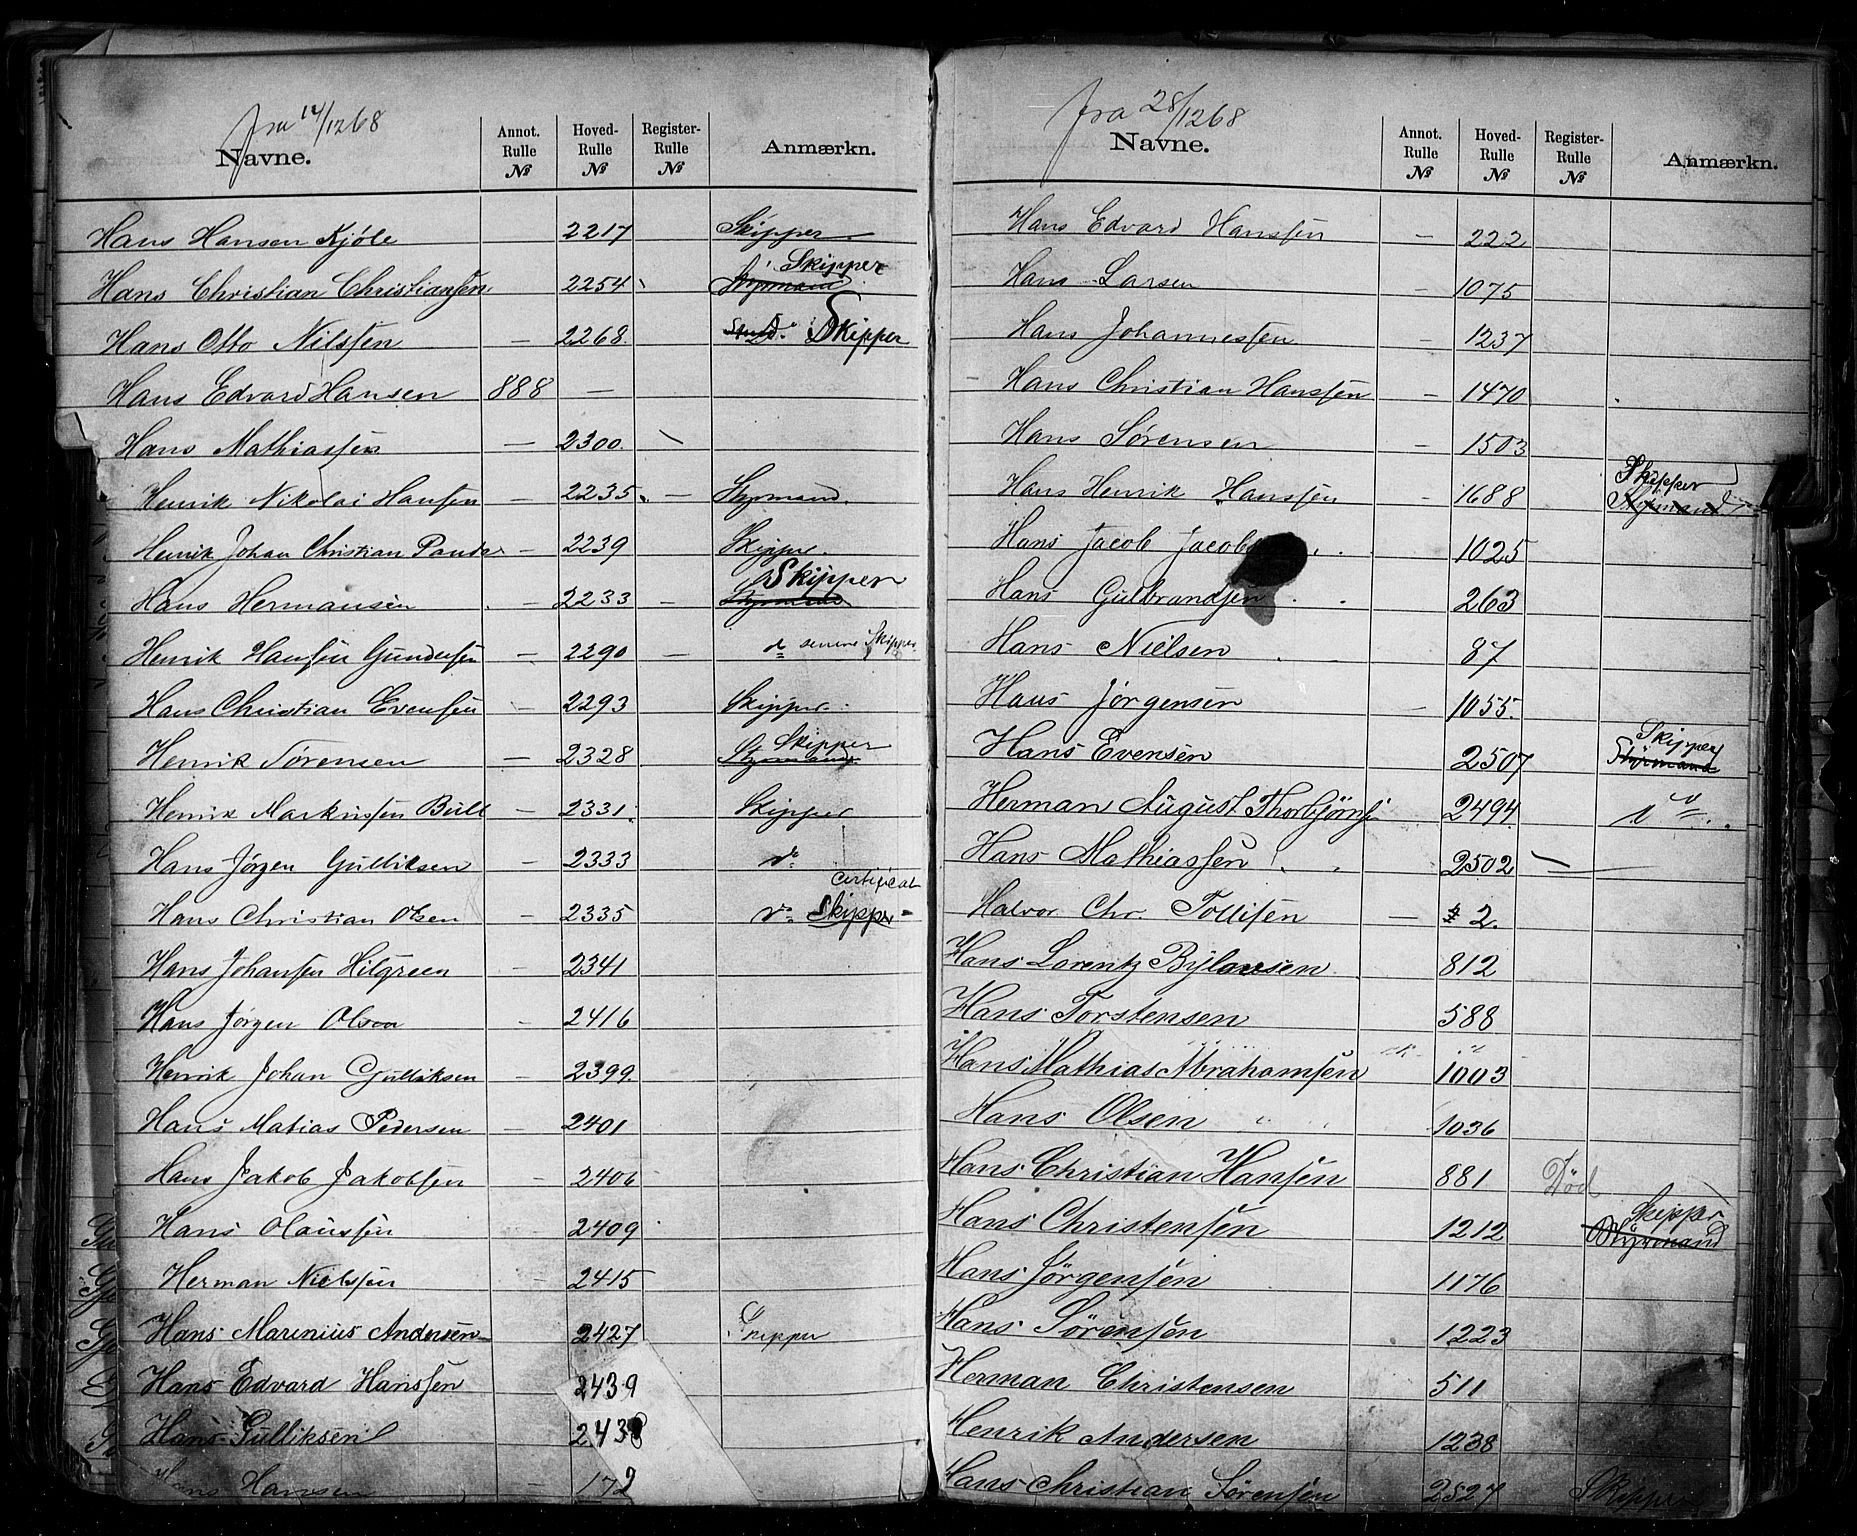 fra 12/12 68
Navne. Annot. Rulle № Hoved- Rulle № Register- Rulle № Anmærkn.
Hans Hansen Kjöle 2217 Skipper
Hans Christian Christianssen 2254 Skipper Styrmand
Hans Otto Nilssen — 2268 Skipper
Hans Edvard Hansen 888 —
Hans Mathiassen — 2300.
Henrik Nikolai Hanssen — 2235 — Styrmand.
Henrik Johan Christian — 2239 Skipper.
Hans Hermansen — 2233 — Skipper Styrmand
Henrik Hanssen Gundersen — 2290 — do senere Skipper
Hans Christian Evensen — 2293 Skipper.
Henrik Sørensen — 2328 Skipper Styrmand
Henrik Markussen Bull — 2331. Skipper
Hans Jørgen Gulliksen — 2333 do
Hans Christian Olsen — 2335 do certificat Skipper
Hans Johanssen Hilgreen — 2341
Hans Jørgen Olsen — 2416
Henrik Johan Gulliksen — 2399.
Hans Matias Pedersen — 2401
Hans Jakob Jakobssen 2406
Hans Olaussen 2409
Herman Nielssen — 2415
Hans Marinius Andersen 2427 Skipper
Hans Edvard Hanssen 2439
Hans Gulliksen 2438
Hans Hansen — 172
fra 28/12 68
Navne. Annot. Rulle № Hoved- Rulle № Register- Rulle № Anmærkn.
Hans Edvard Hanssen — 222
Hans Larsen — 1075
Hans Johannessen — 1237
Hans Christian Hanssen — 1470
Hans Sørensen — 1503
Hans Henrik Hanssen — 1688 Skipper Styrmand
Hans Jacob 1025
Hans Gulbrandsen 263
Hans Nielsen 87
Hans Jørgensen — 1055.
Hans Evensen 2507 Skipper Styrmand
Herman August Thorbjørns 2494 do
Hans Mathiassen 2502 —
Halvor Chr. Tollifsen — 2.
Hans Lorentz Bylausen 812
Hans Torstensen 588
Hans Mathias Abrahamsen 1003
Hans Olsen 1036
Hans Christian Hansen 881 Död
Hans Christensen 1212 Skipper Styrmand
Hans Jørgensen 1176
Hans Sørensen 1223
Herman Christensen 511
Henrik Andersen 1238
Hans Christian Sørensen 2527 Skipper